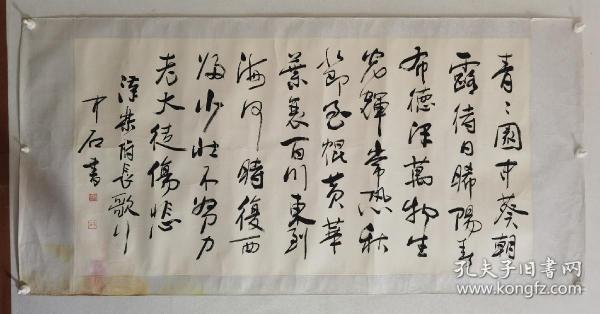 青〻園中葵朝
露待日晞陽春
布德澤萬物生
光輝常恐秋
節至焜黄華
葉衰百川東到
海何時復西
歸少壯不努力
老大徒傷悲
漢樂府長歌行
中石書
孔夫子旧書网
www.kongfz.com